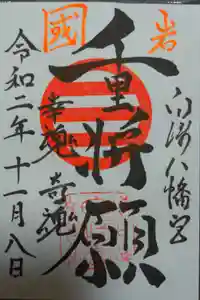 岩國
白崎八幡宮
将願
幸魂 奇魂
令和二年十一月八日